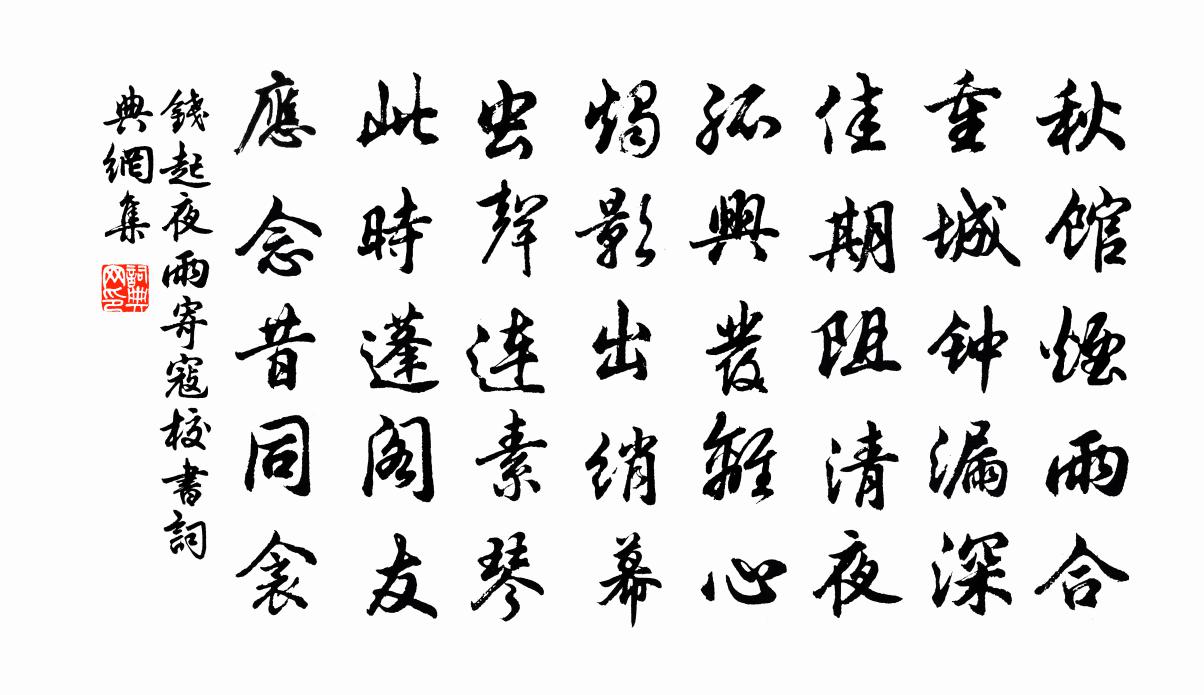 秋館煙雨合
重城钟漏深
佳期阻清夜
孤興發離心
燭影出綃幕
虫聲連素琴
此時蓬閣友
應念昔同衾
錢起夜雨寄寇校書詞
典網集
詞典
网印